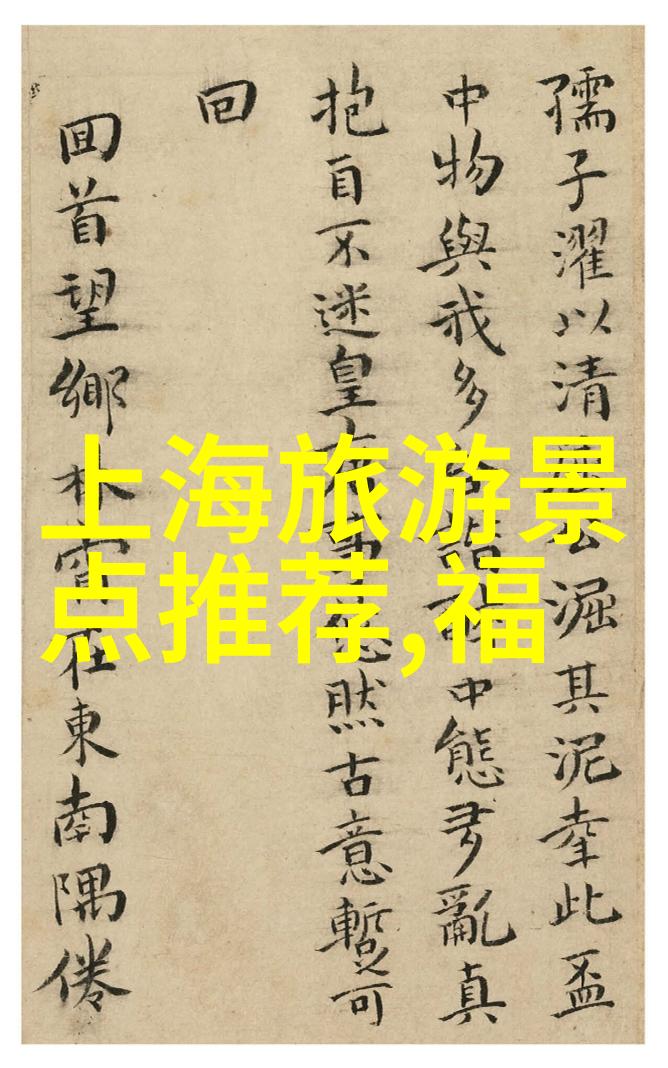 孺子濯以清公淈其泥此盃
中物與我多中態多亂真
抱不迷皇然古意暫可
回
回首望鄉林在東南隅倦
上海旅游景
点推荐,福